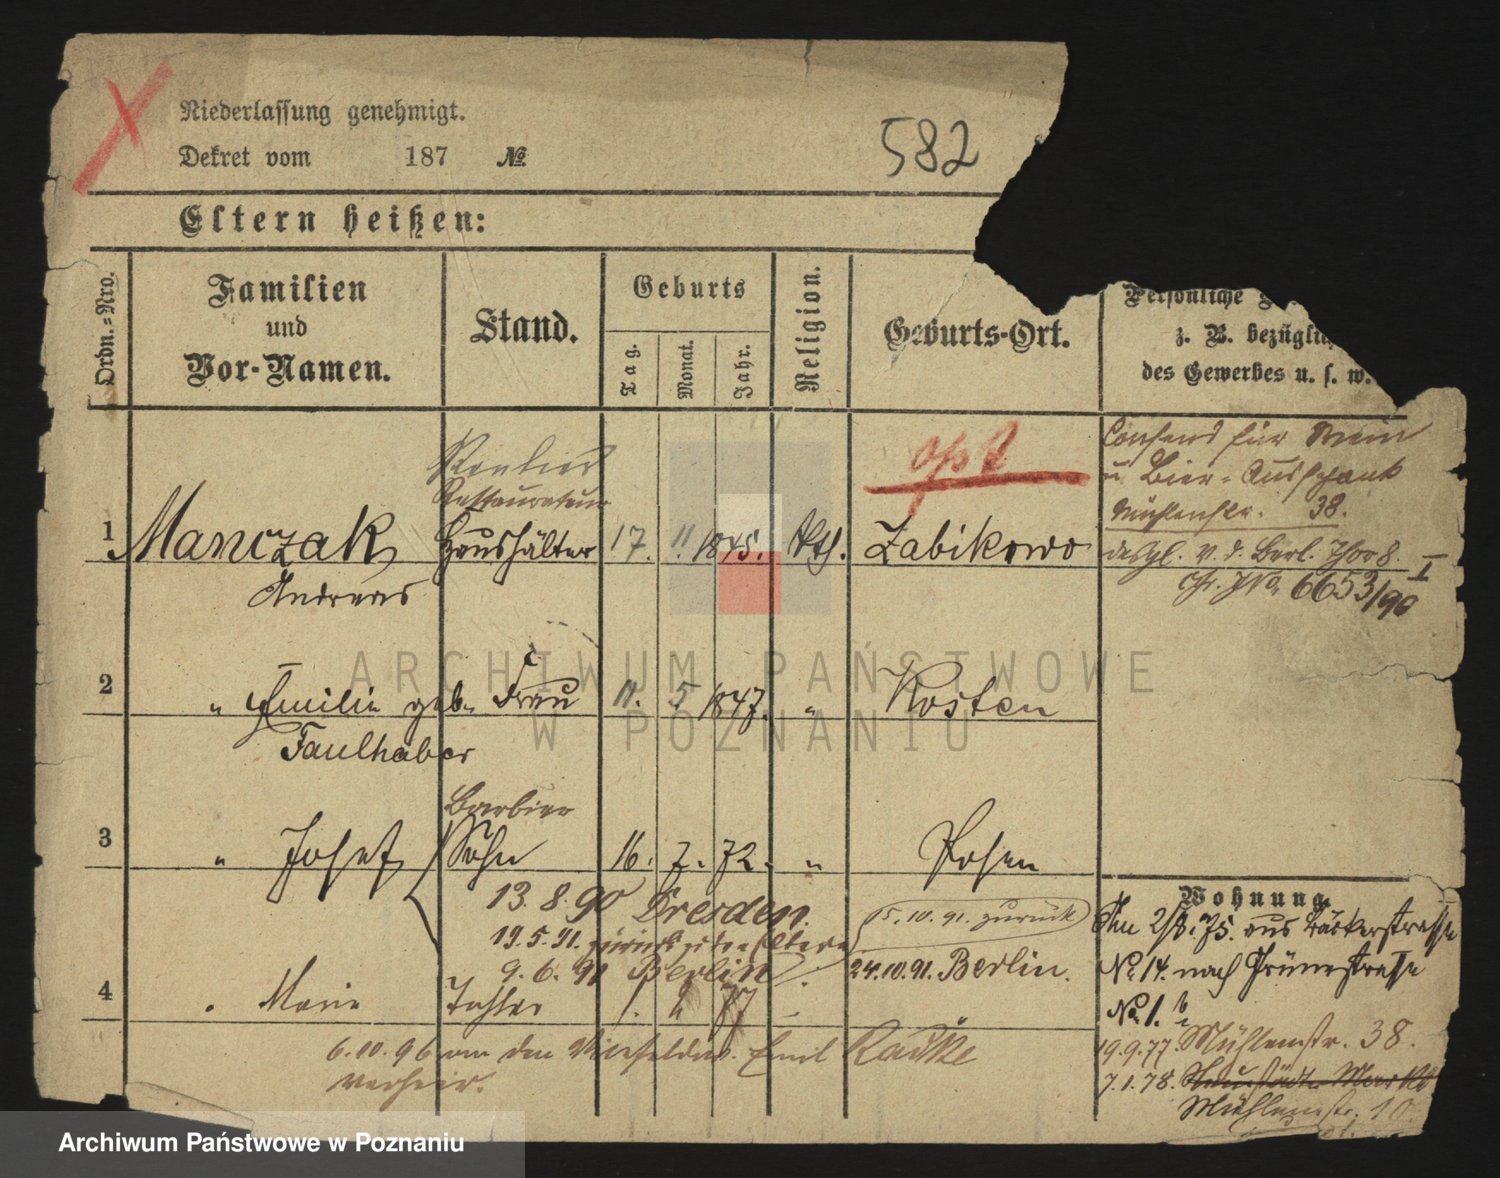 Niederlassung genehmigt.
Dekret vom 187 №
582
Eltern heißen:
Ordn.=Nro.
Familien und Vor-Namen.
Stand.
Geburts
Tag.
Monat.
Jahr.
Religion.
Geburts-Ort.
Persönliche
z. B. bezüglich
des Gewerbes u. s. w.
Rentier
Restaurateur
1 Manczak Haushälter 17. 11. 1845. kth. Zabikowo
Andreas
Consens für Wein
u Bier-Ausschank
Mühlenstr. 38.
desgl. v. d. Berl. Thor 8. I
6653/90
2 " Emilie geb. Frau 11. 5 1847. " Kosten
Faulhaber
Barbier
3 " Josef Sohn 16. 7. 72. " Posen
13.8.90 Dresden.
19.5.91. zurück zu den Eltern
15.10.91. zurück
9.6.91 Berlin
24.10.91. Berlin.
4 " Marie Tochter 1. 77
6.10.96 an den Emil Radke
verheir.
Wohnung.
2/8. 75. aus Bäckerstrasse
№ 14. nach Grünestrasse
№ 1.
19.9.77. Mühlenstr. 38.
7.1.78. Neustädter Markt
Mühlenstr. 10
ARCHIWUM PAŃSTWOWE
W POZNANIU
Archiwum Państwowe w Poznaniu